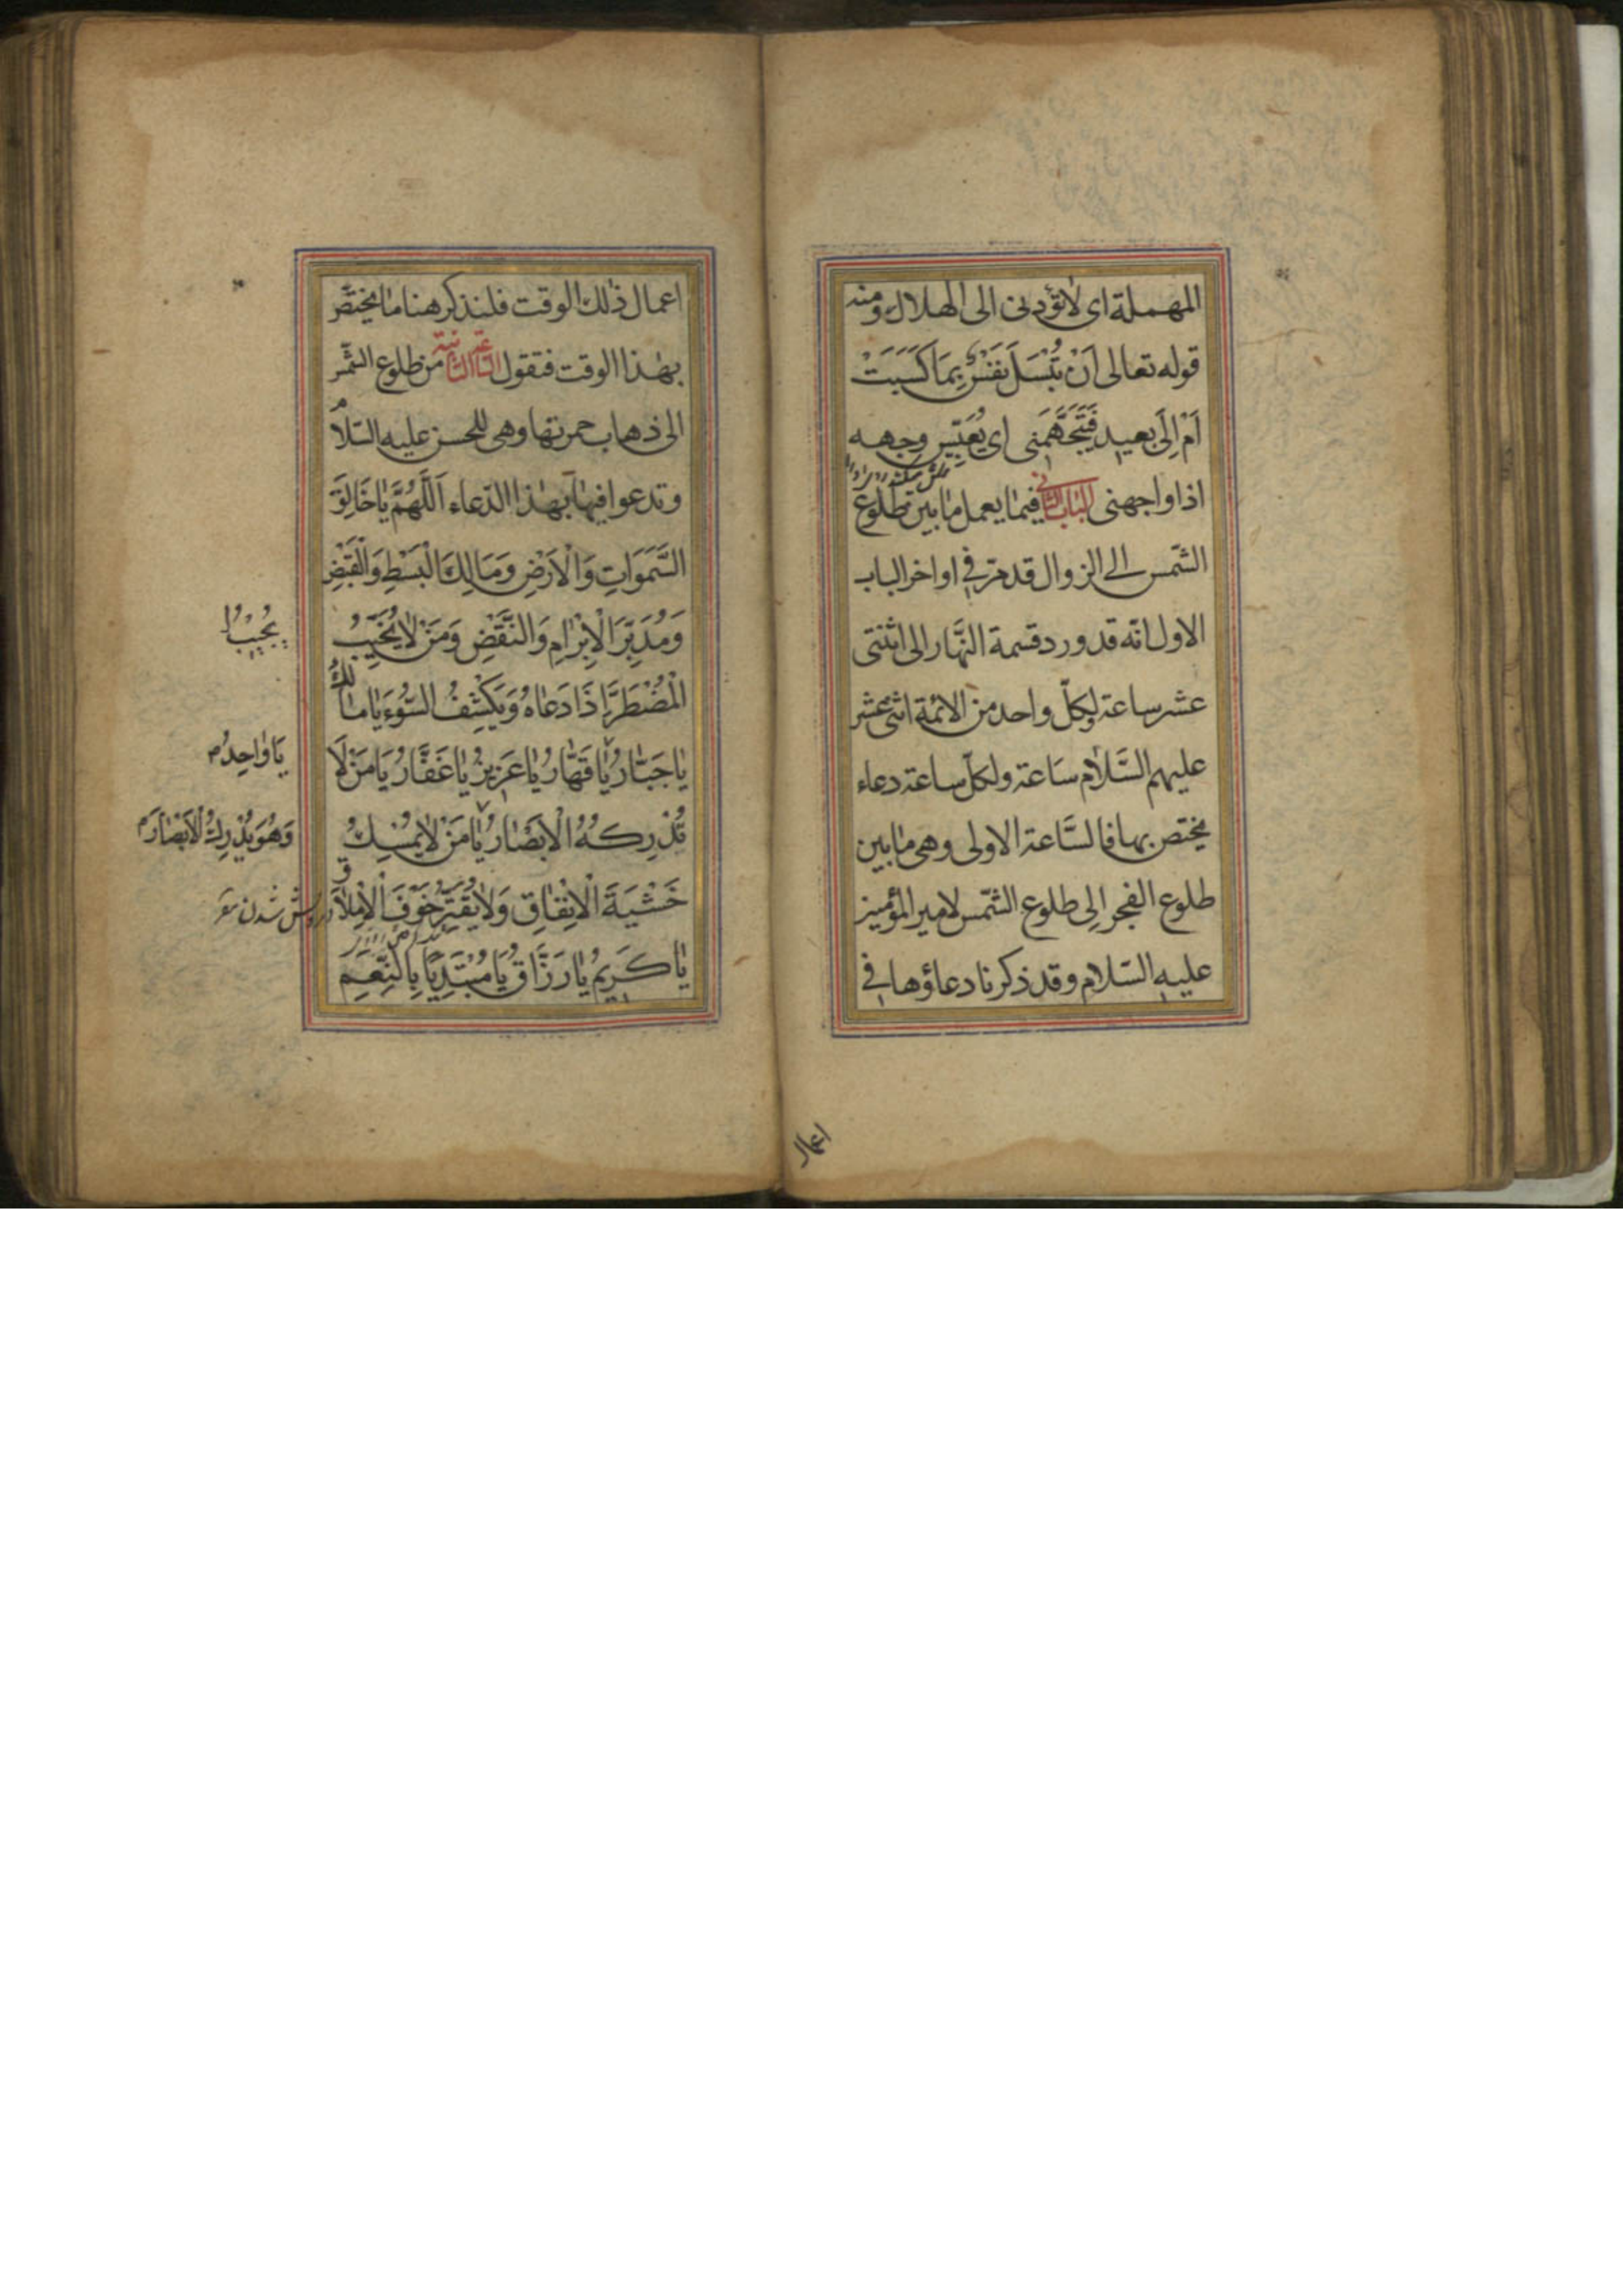 المهملة اى لا تؤدنى الى الهلاك ومنه
قوله تعالى اَنْ تُبْسَلَ نَفْسٌ بِمَا كَسَبَتْ
اَمْ اِلَى بعيد فَتَجَهَّمَنِى اى يُعَبِّس وجهه
اذا واجهنى الباب الثانى فيما يعمل ما بين طلوع
الشّمس الى الزوال قد مرّ فى اواخر الباب
الاول انّه قد ورد قسمة النَّهار الى اثنتى
عشر ساعة لكلّ واحد من الائمة اثنى عشر
عليهم السَّلام سَاعة ولكلّ ساعة دعاء
يختص بها فالسَّاعة الاولى وهى ما بين
طلوع الفجر الى طلوع الشّمس لامير المؤمنين
عليه السّلام وقد ذكرنا دعاؤها فى
اعمال
اعمال ذلك الوقت فلنذكر هنا ما يختصّ
بهذا الوقت فنقول السّاعة الثانية من طلوع الشّمس
الى ذهاب حمرتها وهى للحسن عليه السّلام
وتدعوا فيها بهذا الدّعاء اَللَّهُمَّ يَا خَالِقَ
السَّمَوَاتِ وَالْاَرْضِ وَمَالِكَ الْبَسْطِ وَالْقَبْضِ
وَمُدَبِّرَ الْاِبْرَامِ وَالنَّقْضِ وَمَنْ لَا يُخَيِّبُ
يُجِيبُ
الْمُضْطَرَّ اِذَا دَعَاهُ وَيَكْشِفُ السُّوءَ يَا مَالِكُ
يَا جَبَّارُ يَا قَهَّارُ يَا عَزِيزُ يَا غَفَّارُ يَا مَنْ لَا
يَا وَاحِدُ م
تُدْرِكُهُ الْاَبْصَارُ يَا مَنْ لَا يُمْسِكُ
وَهُوَ يُدْرِكُ الْاَبْصَارَ م
خَشْيَةَ الْاِنْفَاقِ وَلَا يُقَتِّرُ خَوْفَ الْاِمْلَاقِ
درويش شدن
يَا كَرِيمُ يَا رَزَّاقُ يَا مُبْتَدِيًا بِالنِّعَمِ